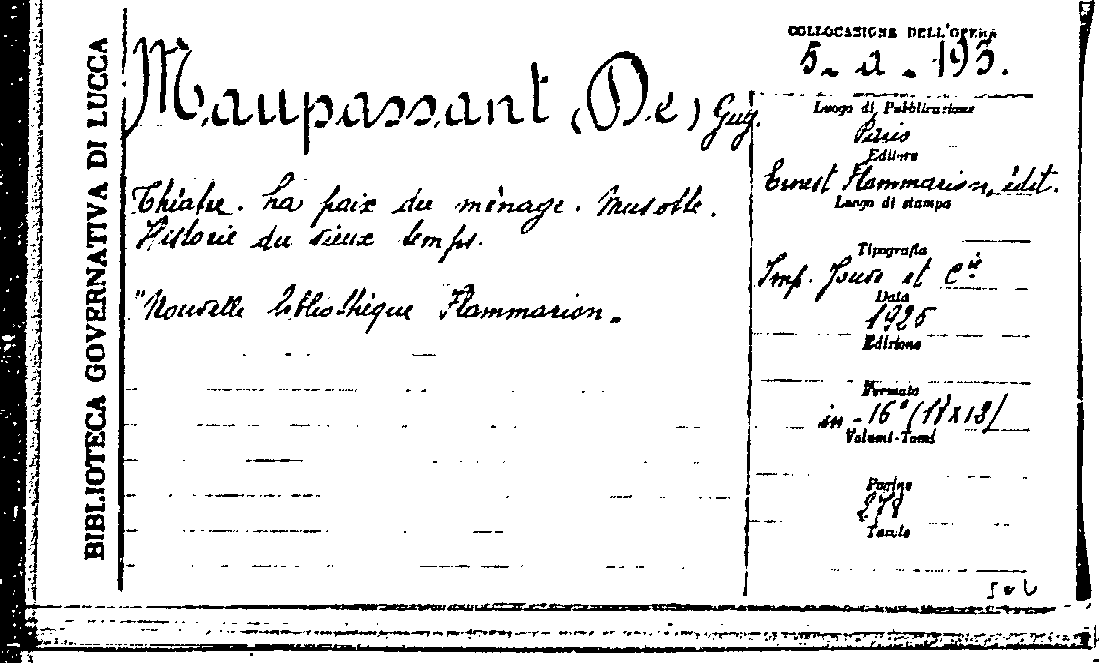 BIBLIOTECA GOVERNATIVA DI LUCCA
Maupassant (De) Guy.
Théatre. La paix du ménage. Musotte.
Historie du vieux temps.
"Nouvelle bibliothèque Flammarion.
COLLOCAZIONE DELL'OPERA
5. a. 193.
Luogo di Pubblicazione
Paris
Editore
Ernest Flammarion, édit.
Luogo di stampa
Tipografia
Imp. et Cie
Data
1926
Edizione
Formato
in-16° (11x18)
Volumi-Tomi
Pagine
278
Tavole